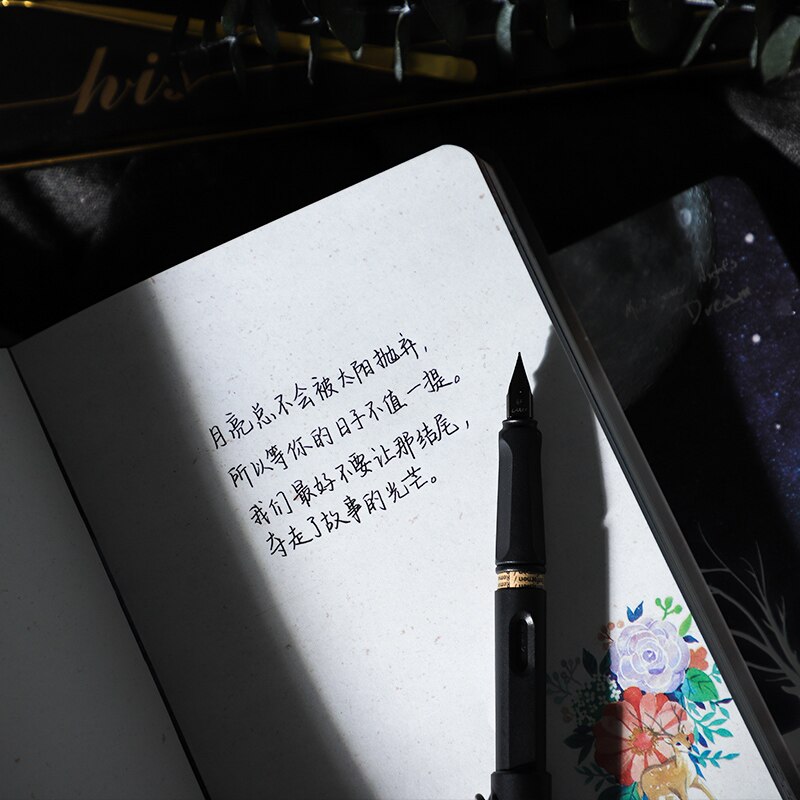 his
Nights
Dream
月亮总不会被太阳抛弃，
所以等你的日子不值一提。
我们最好不要让那结尾，
夺走了故事的光芒。